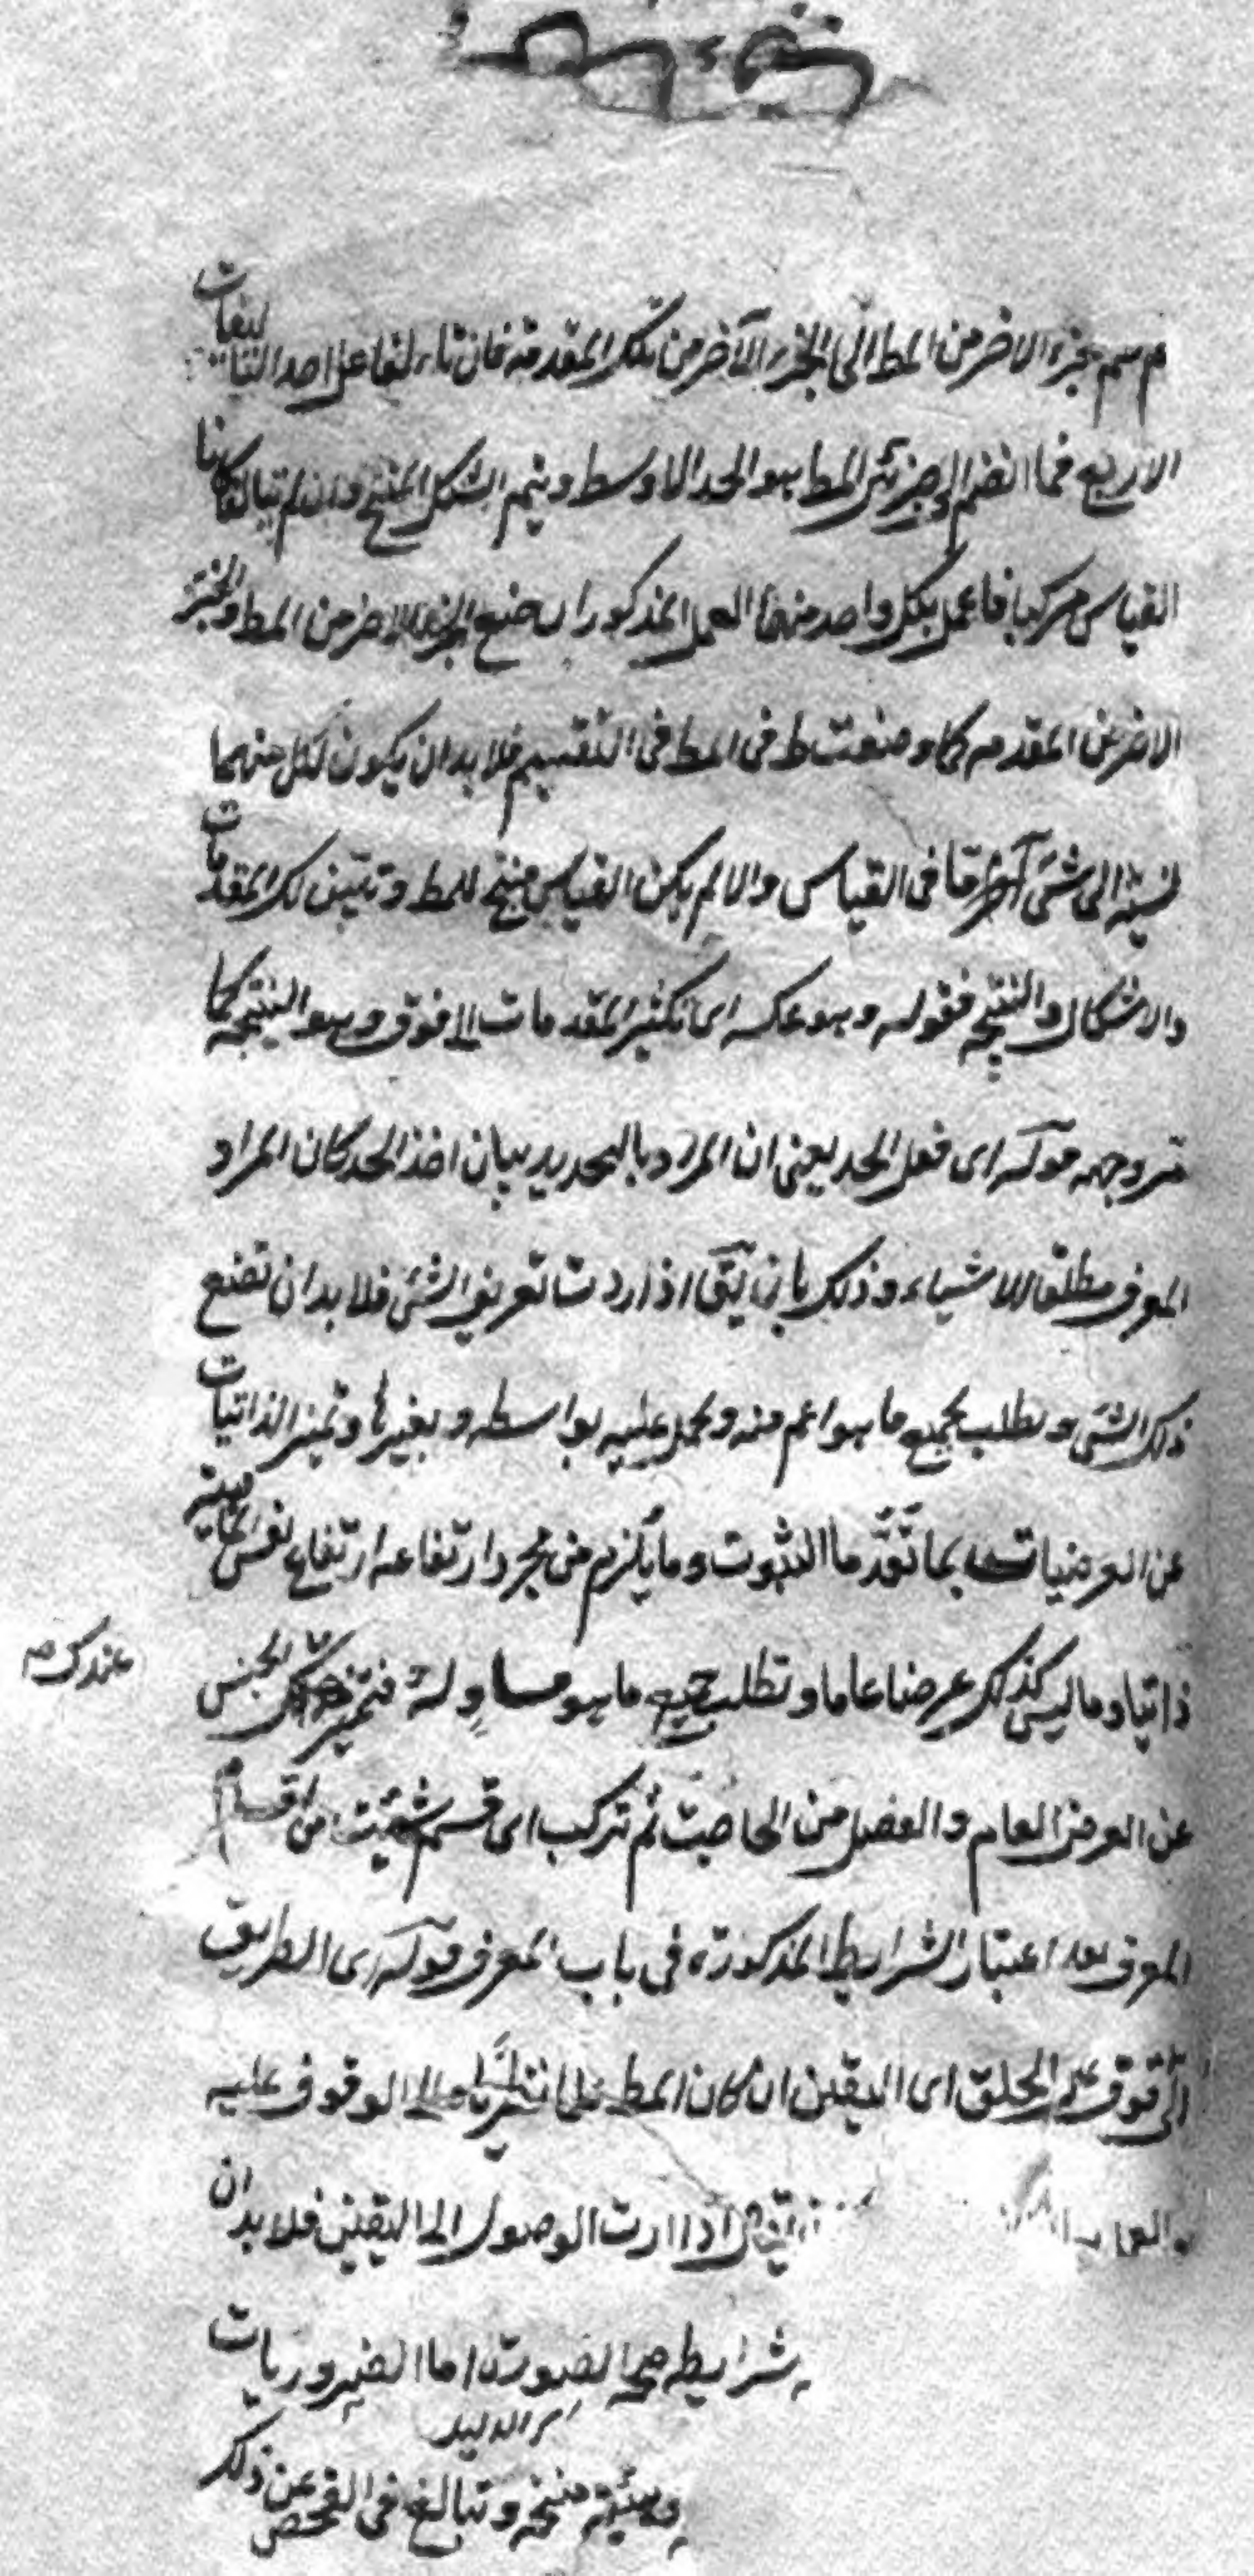 ثم ضم الجزء الاخر من المط الى الجزء الآخر من تلك المقدمة فان تالفا على احد التاليفات
الاربع فما انضم الى جزئى المط هو الحد الاوسط ويتم الشكل المنتج وان لم يتالفا كانا
القياس مركبا فاعمل بكل واحد منهما العمل المذكور اى ضع الجزء الاخر من المط والجزء
الاخر من المقدمه كما وضعت ط فى المط فى التقسيم فلا بد ان يكون لكل منهما
نسبة الى شئ آخر ما فى القياس والا لم يكن القياس منتج للمط وتبين لك المقدمات
والاشكال والنتيجه فقوله وهو عكسه اى تكثير المقدمات الى فوق وهو النتيجه كما
مر وجهه قوله اى فعل الحد يعنى ان المراد بالتحديد بيان اخذ الحد كان المراد
المعرف مطلقا للاشياء وذلك بان يق اذا اردت تعريف الشئ فلا بد ان تضع
ذلك الشئ وتطلب جميع ما هو اعم منه وتحمل عليه بواسطه وبغيرها وتميز الذاتيات
عن العرضيات بما تقدم ما الثبوت وما يلزم من مجرد ارتفاعه ارتفاع نفس الماهية
ذاتيا وما ليس كذلك عرضا عاما وتطلب جميع ما هو مساوٍ له فتميز الجنس
عندك ص
عن العرض العام والفصل من الخاصة ثم تركب اى قسم شئت من اقسام
المعرف بعد اعتبار الشرايط المذكورة فى باب المعرف قوله اى الطريق
الى الوقوف على الحق اى اليقين ان كان المط علما نظريا والى الوقوف عليه
والعمل يق اذا اردت الوصول الى اليقين فلا بد ان
شرايطه صحة الصورة اما الضروريات
هيئة منتجه وتبالغ فى الفحص عن ذلك